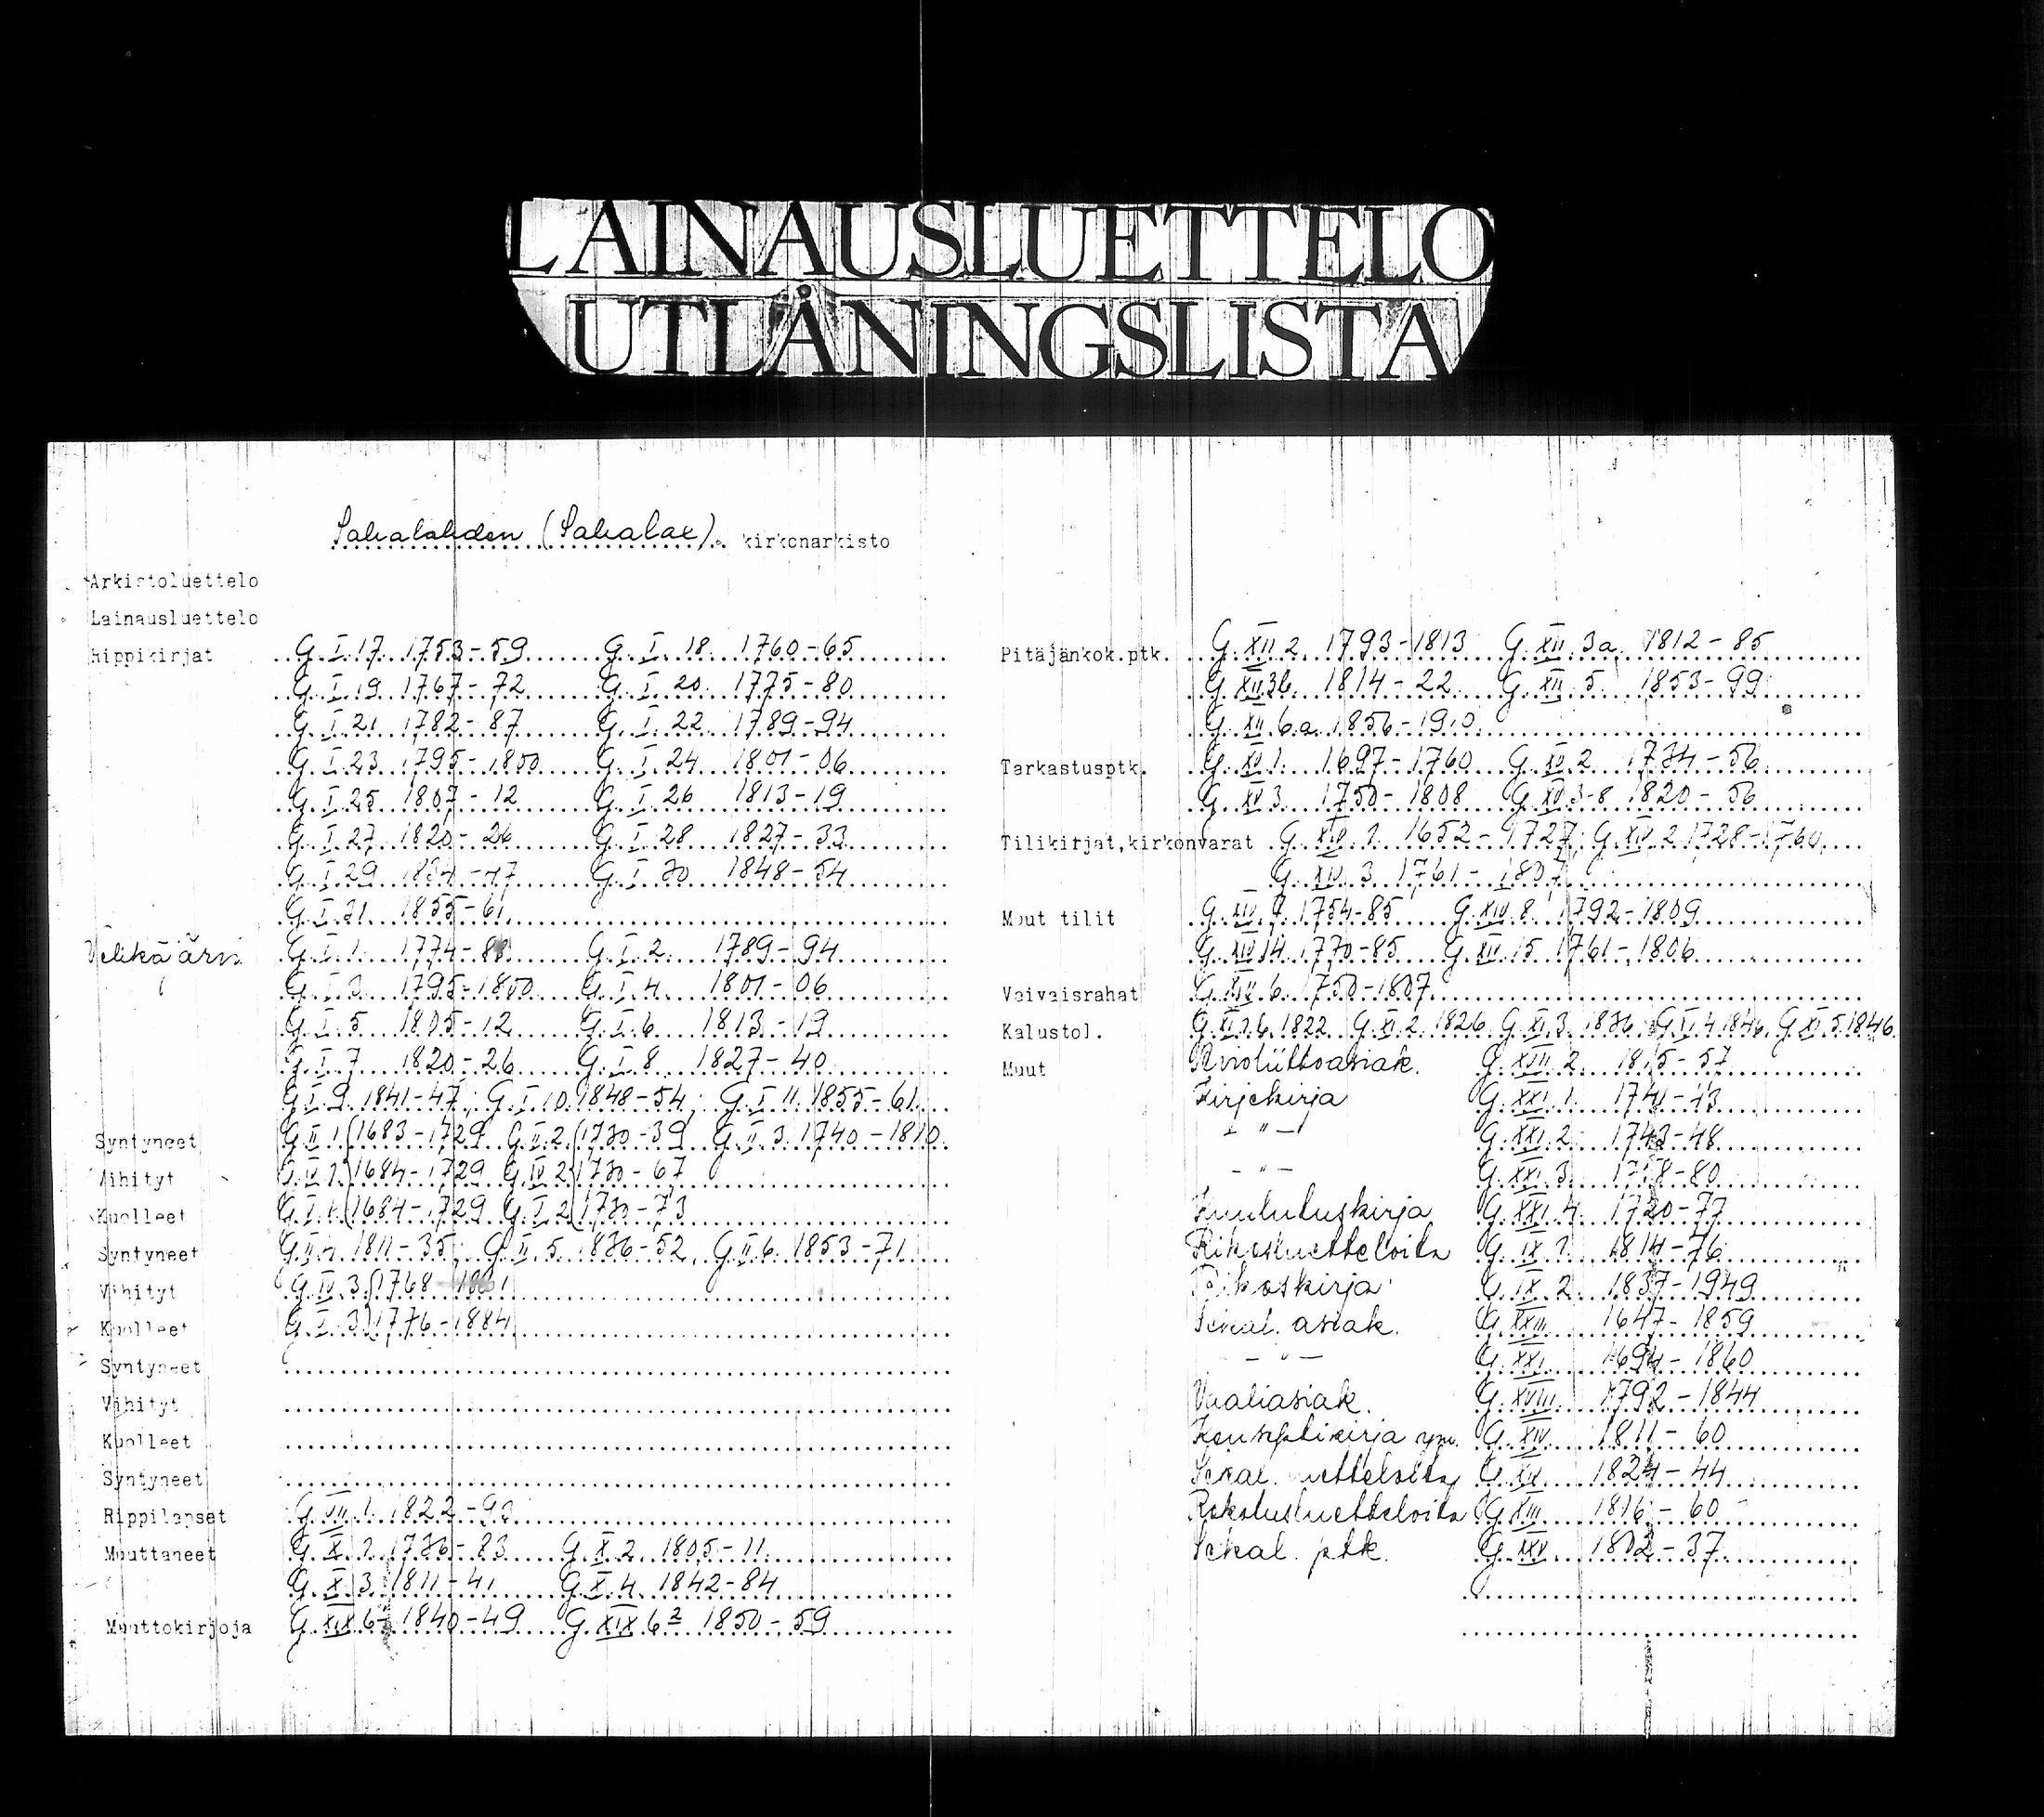 LAINAUSLUETTELO
UTLÅNINGSLISTA
Sahalahden (Sahalax) kirkonarkisto
Arkistoluettelo
Lainausluettelo
Rippikirjat G.I.17 1753-59 G.I.18 1760-65
G.I.19 1767-72 G.I.20 1775-80
G.I.21 1782-87 G.I.22 1789-94
G.I.23 1795-1800 G.I.24 1801-06
G.I.25 1807-12 G.I.26 1813-19
G.I.27 1820-26 G.I.28 1827-33
G.I.29 1834-47 G.I.30 1848-54
G.I.31 1855-61
G.I.1. 1774- G.I.2. 1789-94
G.I.3. 1795-1800 G.I.4. 1801-06
G.I.5. 1805-12 G.I.6. 1813-19
G.I.7 1820-26 G.I.8. 1827-40
G.I.9 1841-47; G.I.10 1848-54; G.I.11. 1855-61
Syntyneet G.II.1. (1683-1729 G.II.2. (1730-39 G.II.3. 1740-1810
Vihityt G.IV.1. 1684-1729 G.IV.2. 1730-67
Kuolleet 1684-1729 1730-73
Syntyneet G.II.4. 1811-35; G.II.5. 1836-52, G.II.6. 1853-71
Vihityt G.IV.3. 1768-
Kuolleet 1776-1884
Syntyneet
Vihityt
Kuolleet
Syntyneet
Rippilapset G.VII.1. 1822-
Muuttaneet G.X.1. 1786-83 G.X.2. 1805-11
G.X.3. 1811-41 G.X.4. 1842-84
Muuttokirjoja G.XIX 6 1840-49 G.XIX 6² 1850-59
Pitäjänkok.ptk. G.XII.2. 1793-1813 G.XII.3a. 1812-85
G.XII.3b. 1814-22 G.XII.5. 1853-99
G.XII.6a. 1856-1910
Tarkastusptk. G.XV.1. 1697-1760 G.XV.2 1734-56
G.XV.3. 1750-1808 G.XV.3-8 1820-56
Tilikirjat,kirkonvarat G.XIV.1. 1652-1727; G.XIV.2. 1728-1760
G.XIV.3. 1761-1807
Muut tilit G.XIV.7. 1754-85 G.XIV.8. 1792-1809
G.XIV.14. 1770-85 G.XIV.15 1761-1806
Vaivaisrahat G.XIV.6. 1750-1807
Kalustol. 1822 G.XI.2. 1826 G.XI.3. 1836 G.XI.4. 1846 G.XI.5. 1846
Muut Avioliittoasiak. G.XVII.2. 1815-57
Kirjekirja G.XXI.1. 1741-43
- " - G.XXI.2. 1743-48
- " - G.XXI.3. -80
Kuulutuskirja G.XXI.4. 1720-77
Rikosluetteloita G.IX.1. 1814-76
Rikoskirja G.IX.2 1837-1949
Sekal. asiak. G.XXIII 1647-1859
- " - G.XXI. 1694-1860
Vaaliasiak. G.XVIII. 1792-1844
G.XIV 1811-60
Sekal. luetteloita 1824-44
Rokotusluetteloita G.XIII 1816-60
Sekal. ptk. G.XXV 1802-37